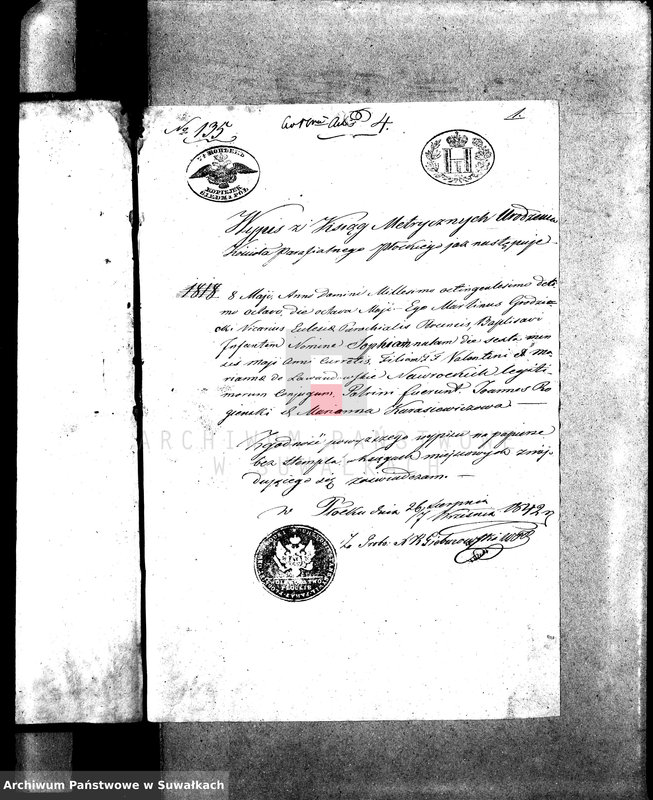 1.
№ 135,
4.
KOPIEJEK
SIEDM I PÓŁ
Wypis z Ksiąg Metrycznych Urodzenia
Kościoła Parafialnego Płockiego jak następuje
1818. 8 Maji. Anno Domini Millesimo octingentesimo deci
mo octavo, die octava Maji Ego Martinus Grodzic
ki Vicarius Ecclesiæ Parochialis Plocensis, Baptisavi
Infantem Nomine Sophiam natam die sexta men
sis maji Anni Currentis, Filiam Valentini & Ma
rianna de Nawrockich legiti
morum Conjugum, Patrini fuerunt. Joannes Ro
& Marianna Karasiewiczowa
Zgodność powyższego wypisu na papierze
bez stempla w Księgach miejscowych znaj
dującego się zaświadczam.
w Płocku dnia 26 Sierpnia
/7 Września 1842 r
Za Prob.
PŁOCKIE
ARCHIWUM PAŃSTWOWE
W SUWAŁKACH
Archiwum Państwowe w Suwałkach